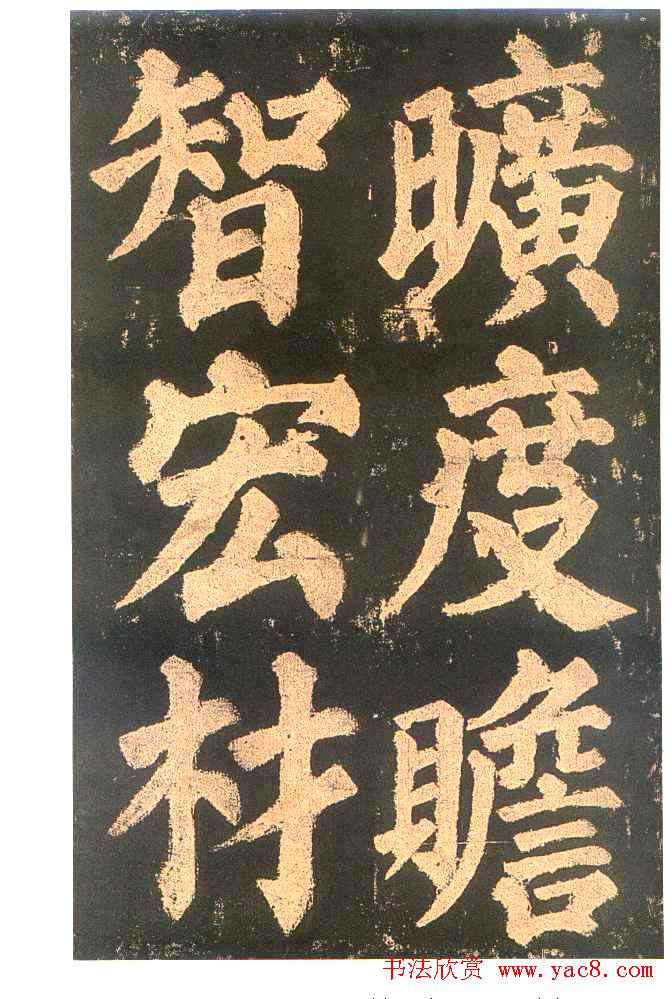 曠度瞻
智宏材
书法欣赏 www.yac8.com